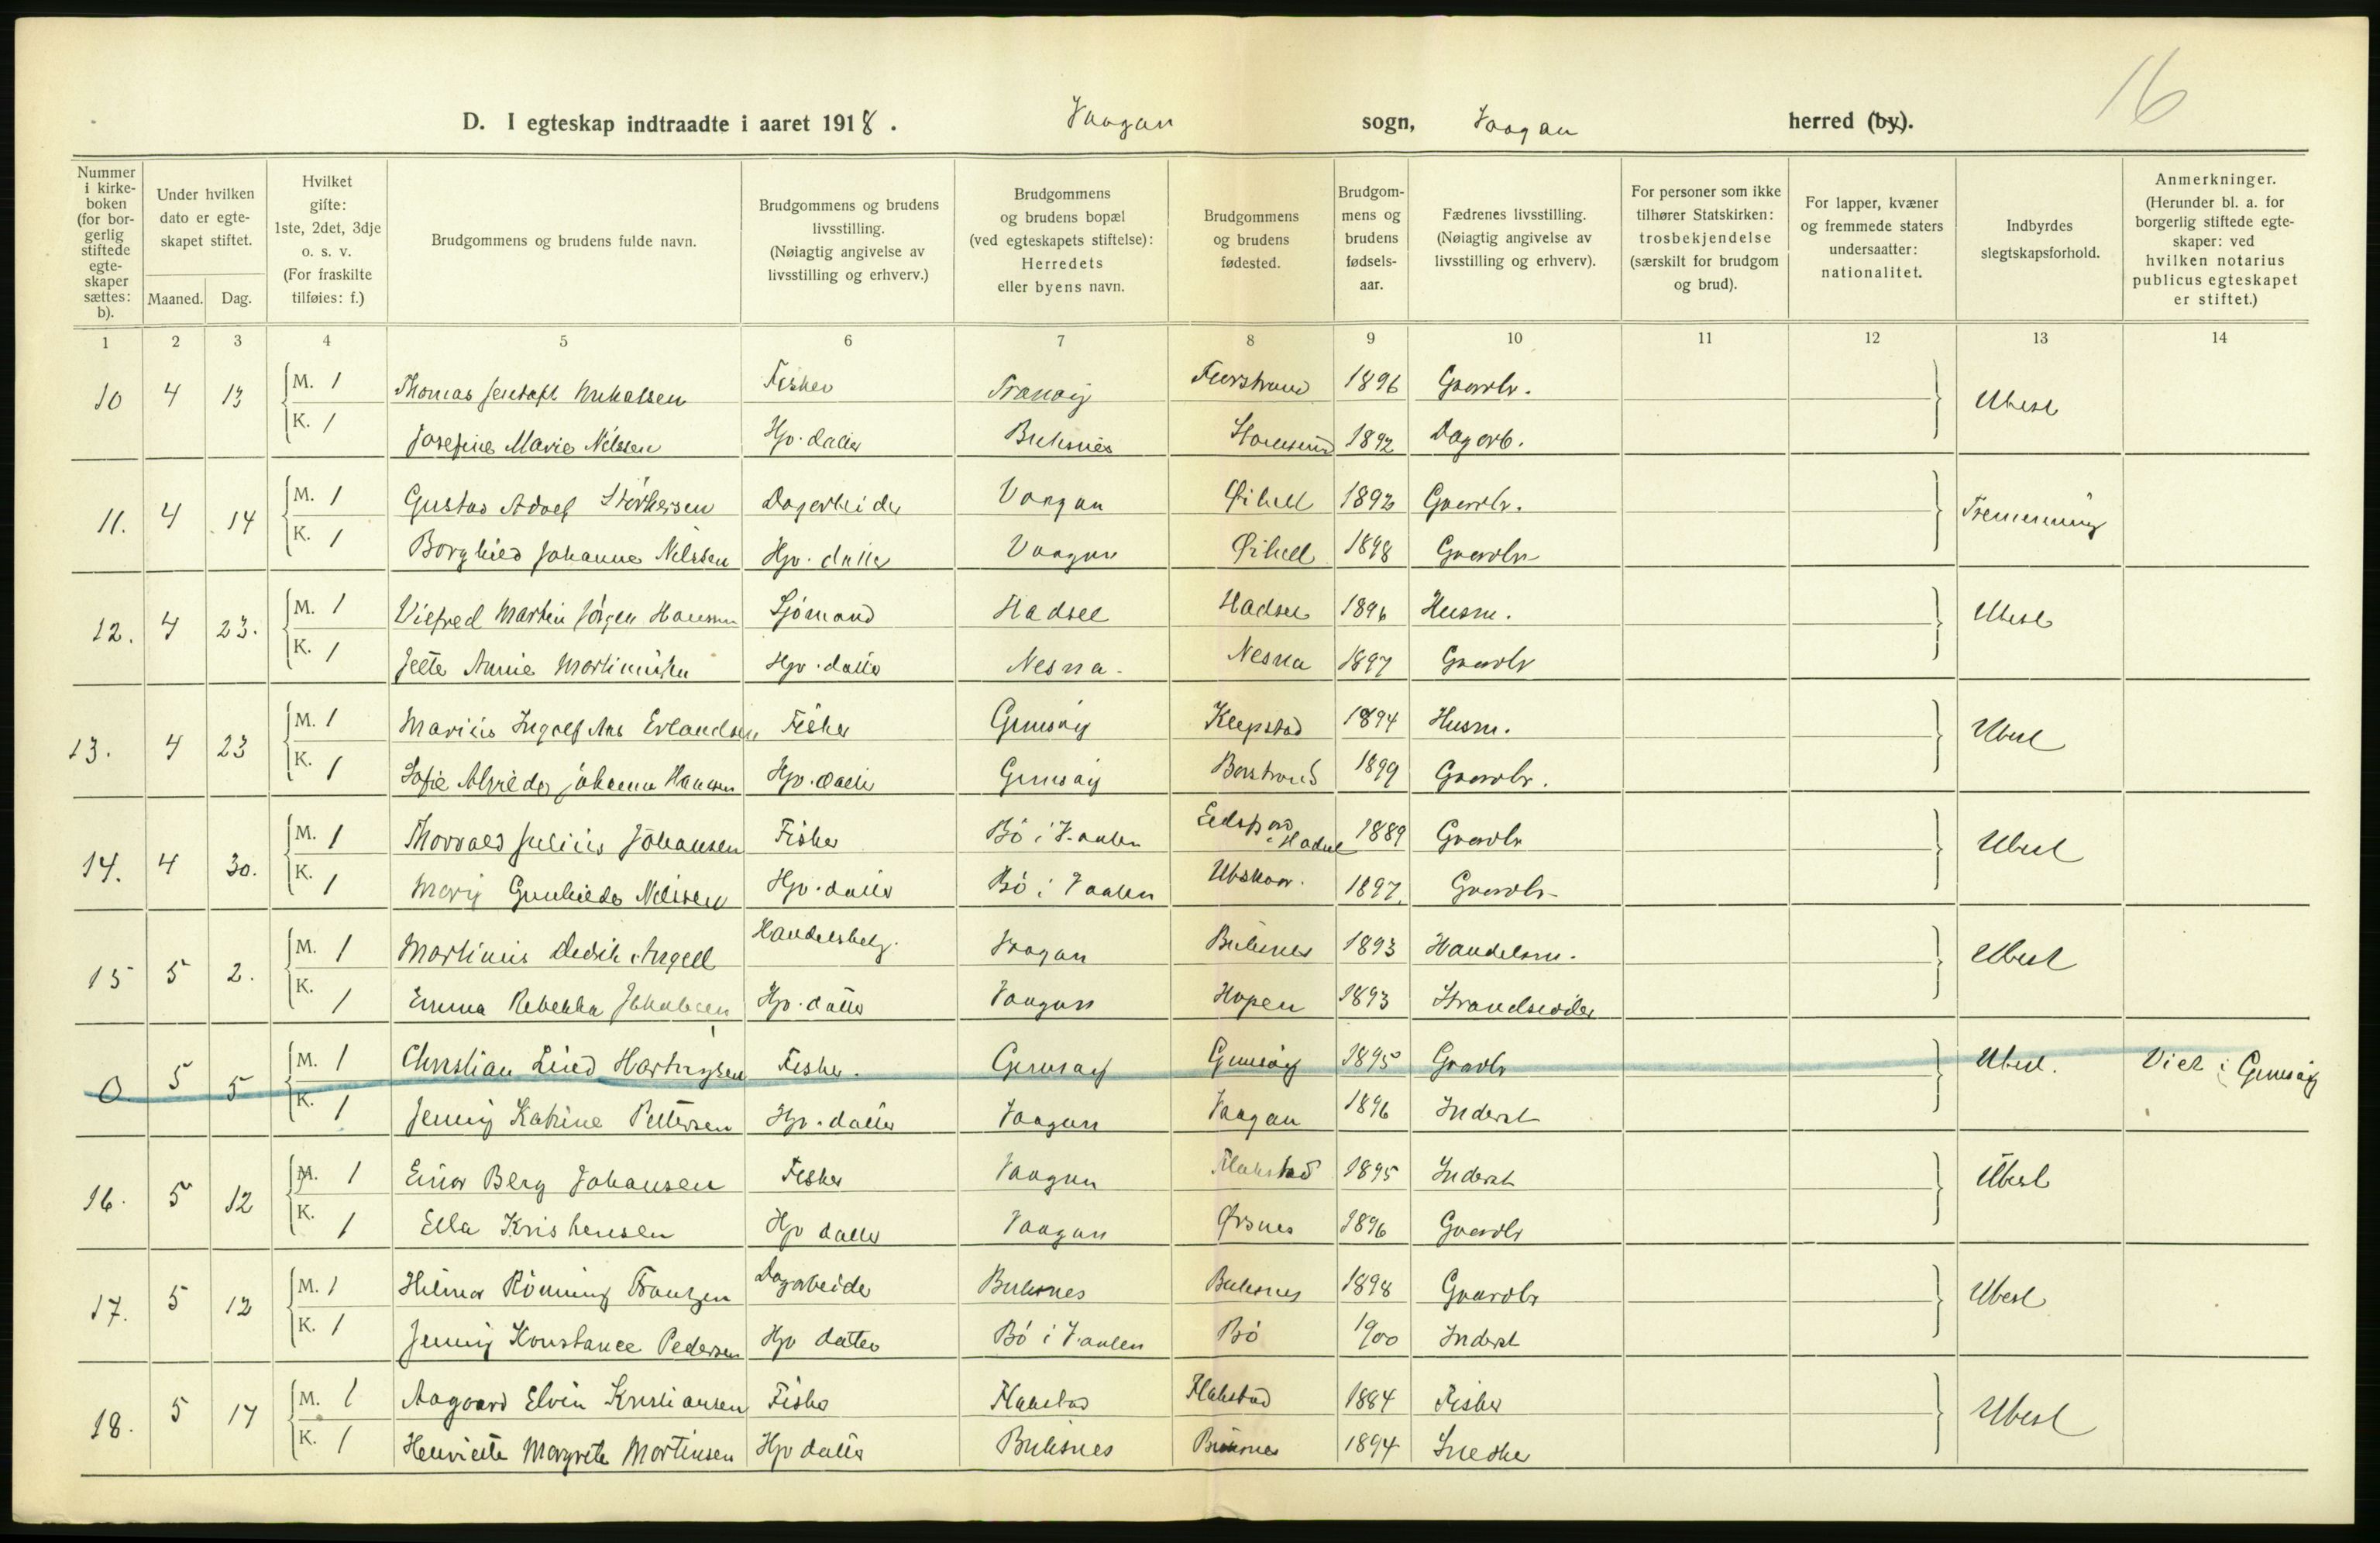 16
D. I egteskap indtraadte i aaret 1918. Vaagan sogn, Vaagan herred (by).
Nummer i kirke-boken (for bor-gerlig stiftede egte-skaper sættes: b).
Under hvilken dato er egte-skapet stiftet.
Maaned. Dag.
Hvilket gifte: 1ste, 2det, 3dje o. s. v. (For fraskilte tilføies: f.)
Brudgommens og brudens fulde navn.
Brudgommens og brudens livsstilling. (Nøiagtig angivelse av livsstilling og erhverv.)
Brudgommens og brudens bopæl (ved egteskapets stiftelse): Herredets eller byens navn.
Brudgommens og brudens fødested.
Brudgom-mens og brudens fødsels-aar.
Fædrenes livsstilling. (Nøiagtig angivelse av livsstilling og erhverv).
For personer som ikke tilhører Statskirken: trosbekjendelse (særskilt for brudgom og brud).
For lapper, kvæner og fremmede staters undersaatter: nationalitet.
Indbyrdes slegtskapsforhold.
Anmerkninger. (Herunder bl. a. for borgerlig stiftede egte-skaper: ved hvilken notarius publicus egteskapet er stiftet.)
1 2 3 4 5 6 7 8 9 10 11 12 13 14
10 4 13 M. 1 Thomas Mikalsen Fisker Tranøy 1896 Gaardbr. Ubesl
K. 1 Josefine Marie Nilssen Hjv. datter Buksnes 1892 Dagarb.
11. 4 14 M. 1 Gustav Adolf Størkersen Dagarbeider Vaagan Øihell 1892 Gaardbr. Tremenning
K. 1 Borghild Johanne Nilssen Hjv. datter Vaagan Øihell 1898 Gaardbr
12. 4 23. M. 1 Vilfred Martin Jørgen Hansen Sjømand Hadsel Hadsel 1896 Husm. Ubesl
K. 1 Jette Annie Martinussen Hjv. datter Nesna. Nesna 1897 Gaardbr
13. 4 23 M. 1 Marius Ingolf Aas Erlandsen Fisker Gimsøy Klepstad 1894 Husm. Ubesl
K. 1 Sofie Alfrida Johanna Hansen Hjv. datter Gimsøy Barstrand 1899 Gaardbr.
14. 4 30. M. 1 Thorvald Julius Johansen Fisker Bø i V.aalen Eidsfjord i Hadsel 1889 Gaardbr Ubesl
K. 1 Mary Gunhilda Nilssen Hjv. datter Bø i Vaalen 1897. Gaardbr
15 5 2. M. 1 Martinus Didrik Angell Handelsbetj. Vaagan Buksnes 1893 Handelsm. Ubesl
K. 1 Emma Rebekka Jakobsen Hjv. datter Vaagan Hopen 1893 Strandsidder
0 5 5 M. 1 Christian Lind Hartvigsen Fisker. Gimsøy Gimsøy 1895 Gaardbr Ubesl. Viet i Gimsøy
K. 1 Jenny Katrine Pettersen Hjv. datter Vaagan Vaagan 1896 Inderst
16. 5 12 M. 1 Einar Berg Johansen Fisker Vaagan Flakstad 1895 Inderst Ubesl
K. 1 Ella Kristensen Hjv datter Vaagan Ørsnes 1896 Gaardbr
17. 5 12 M. 1 Hilmar Rønning Frantzen Dagarbeider Buksnes Buksnes 1898 Gaardbr Ubesl
K. 1 Jenny Konstance Pedersen Hjv datter Bø i V.aalen Bø 1900 Inderst
18. 5 17 M. 1 Aagaard Elvin Kristiansen Fisker Flakstad Flakstad 1884 Fisker Ubesl
K. 1 Henriette Margrete Martinsen Hjv datter Buksnes Buksnes 1894 Snedker